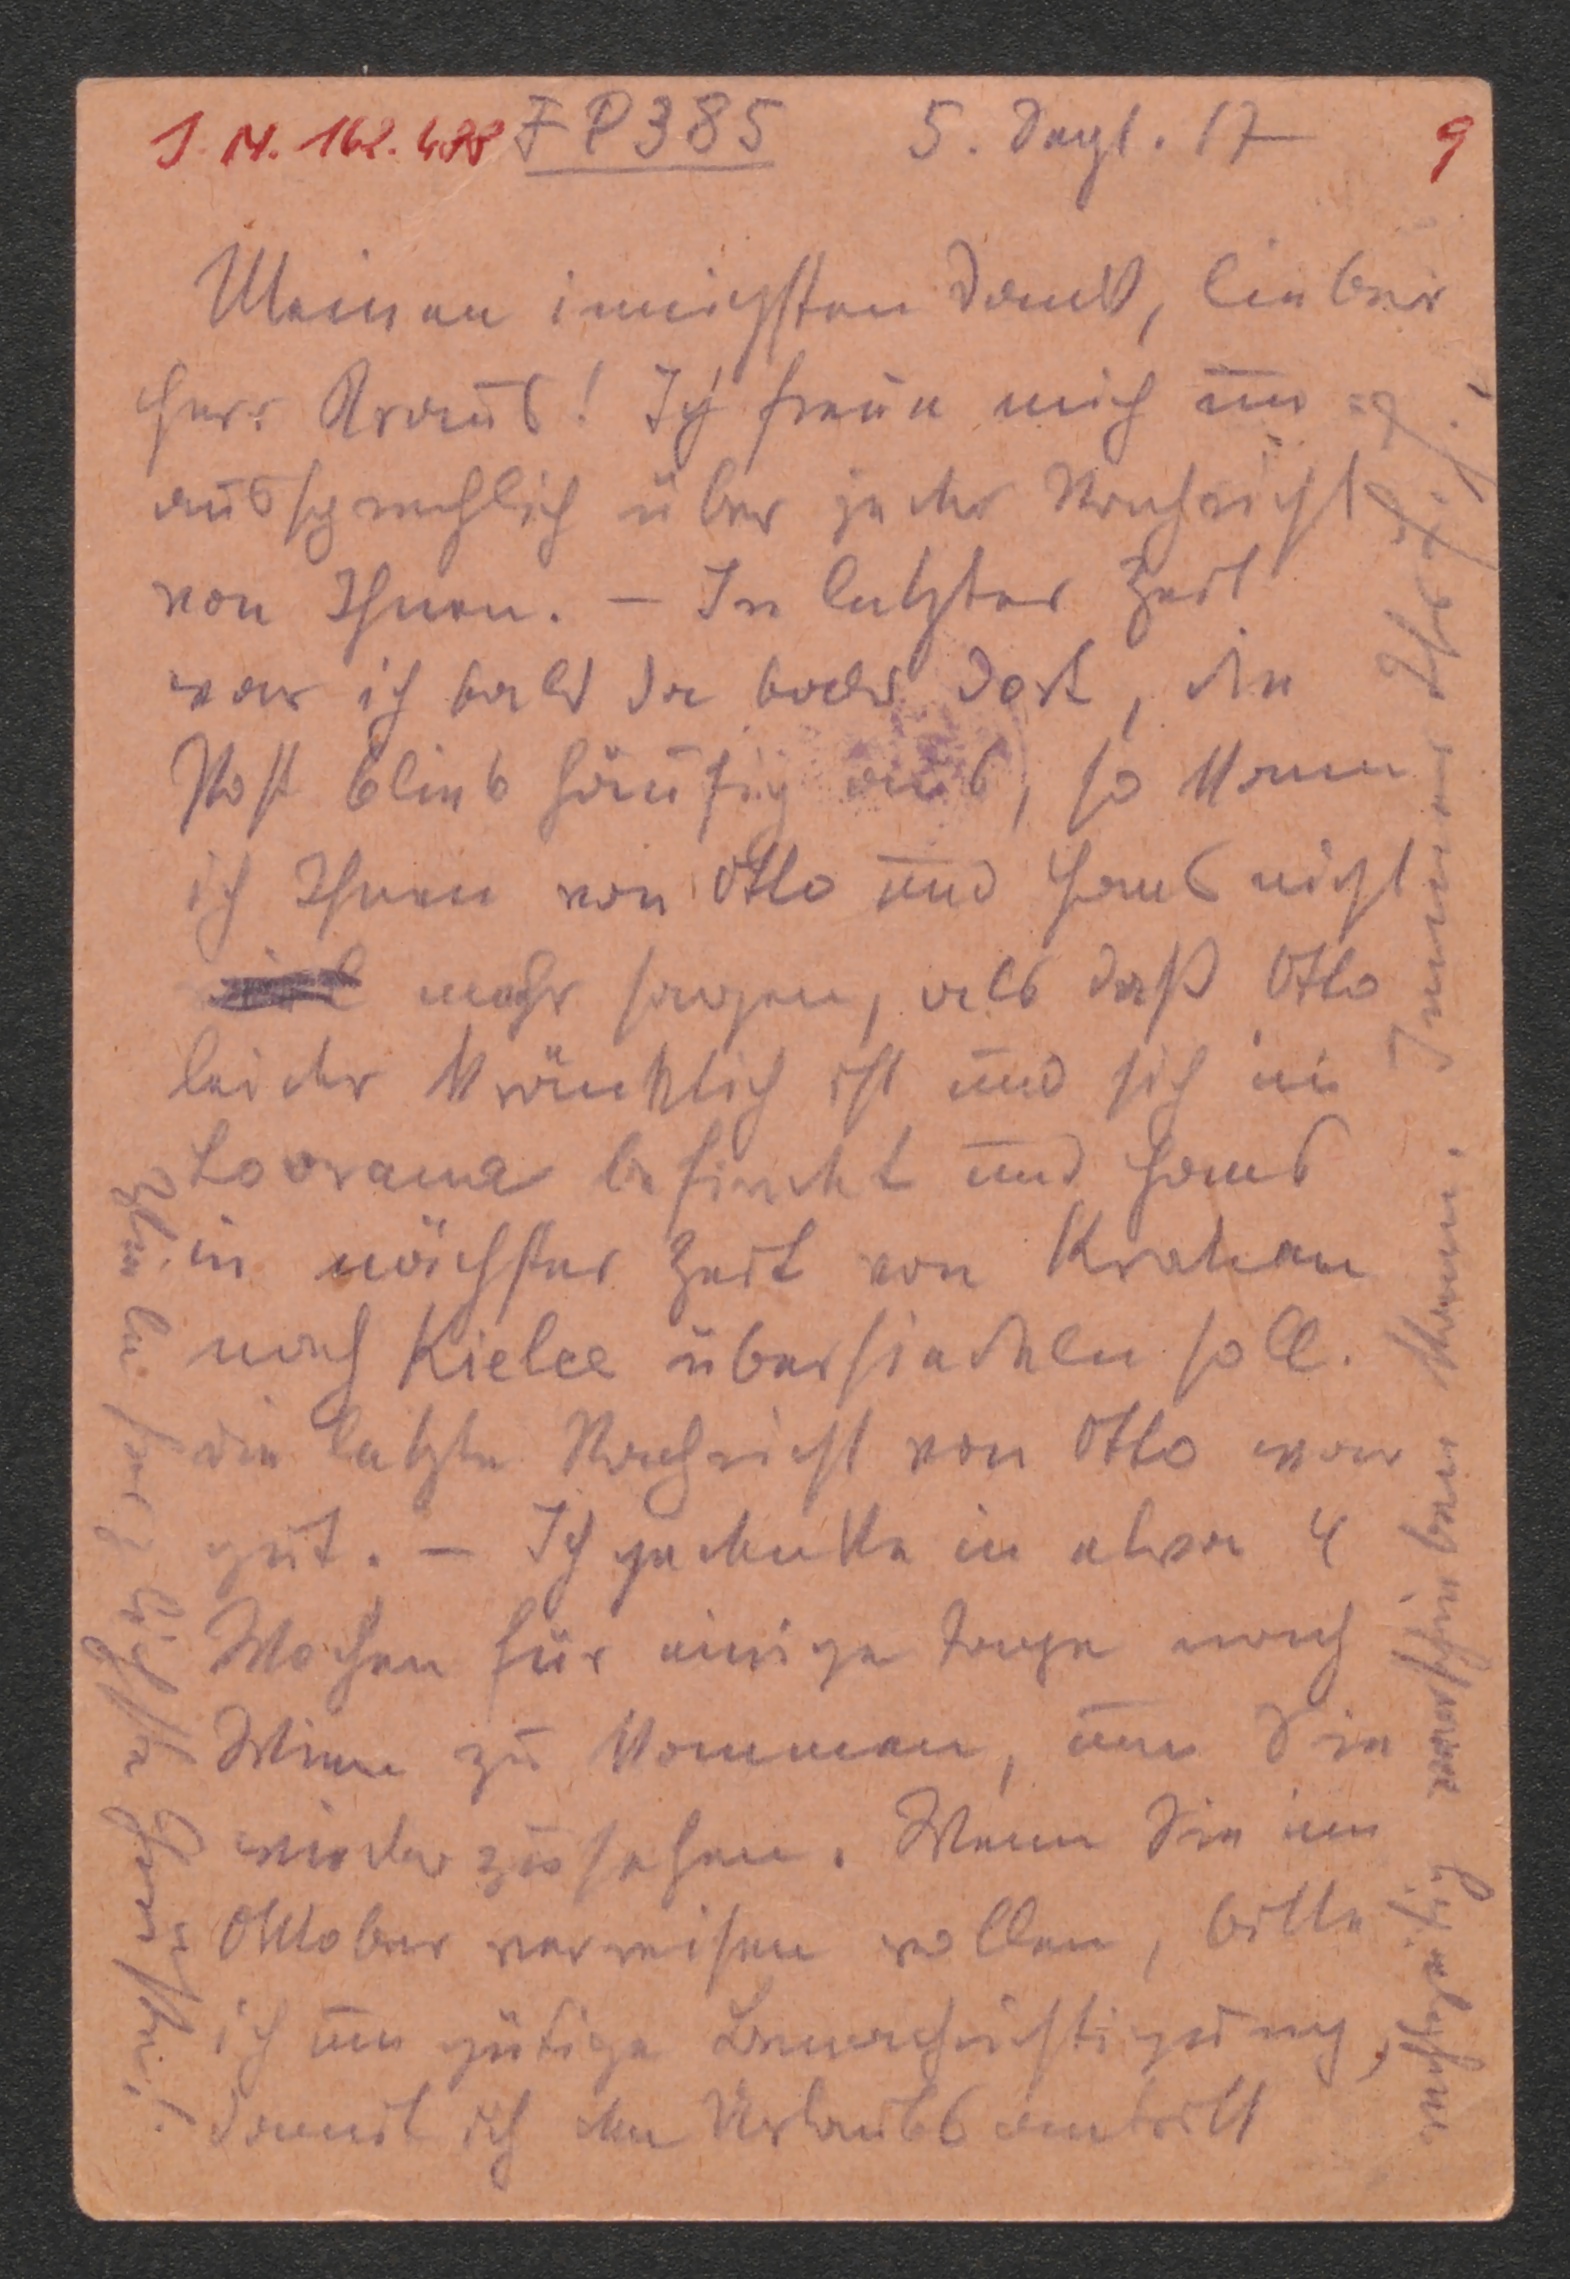 I. N. 162.498 FP 385 5. Sept. 17 9
Meinen innigsten Dank, lieber
Herr Kraus! Ich freue mich un=
aussprechlich über jede Nachricht
von Ihnen. – In letzter Zeit
war ich bald da bald dort, die
Post blieb häufig aus, so kann
ich Ihnen von Otto und Hans nicht
mehr sagen, als daß Otto
leider kränklich ist und sich in
Lovrana befindet und Hans
in nächster Zeit von Krakau
nach Kielce übersiedeln soll.
Die letzte Nachricht von Otto war
gut. – Ich gedenke in etwa 4
Wochen für einige Tage nach
Wien zu kommen, um Sie
wiederzusehen. Wenn Sie im
Oktober verreisen wollen, bitte
ich um gütige Benachrichtigung,
damit ich den Urlaubsantritt
rechtzeitig verschieben kann. Immer Ihr
Viele herzlichste Grüße!